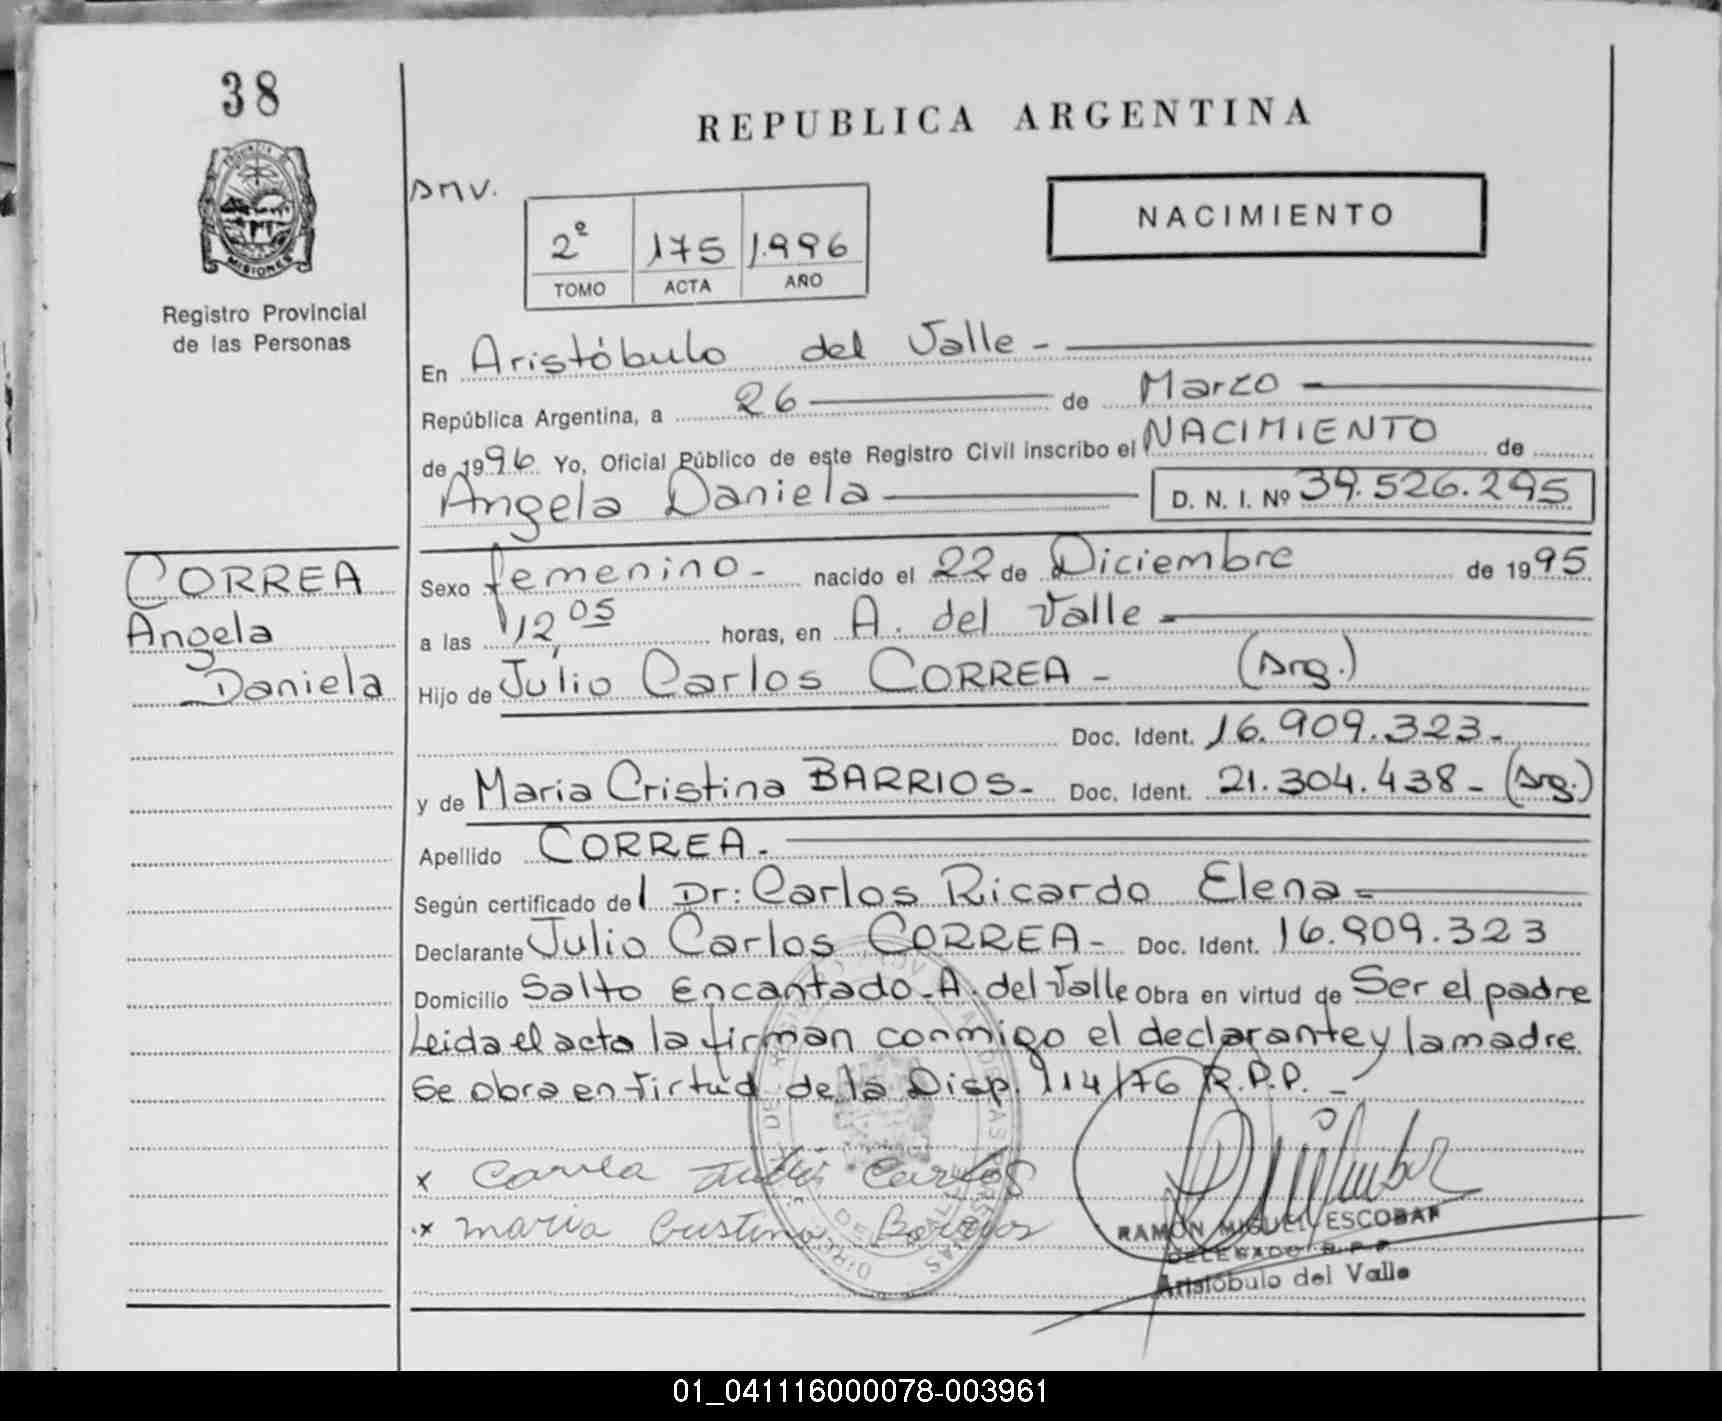 38
REPUBLICA ARGENTINA
PROVINCIA DE
MISIONES
Registro Provincial
de las Personas
NACIMIENTO
2º 175 1.996
TOMO ACTA AÑO
En Aristóbulo del Valle -
República Argentina, a 26 de Marzo -
de 1996 Yo, Oficial Público de este Registro Civil inscribo el NACIMIENTO de
Angela Daniela D. N. I. Nº 39.526.295
CORREA
Angela
Daniela
Sexo femenino - nacido el 22 de Diciembre de 1995
a las 12,05 horas, en A. del Valle -
Hijo de Julio Carlos CORREA - (Arg.)
Doc. Ident. 16.909.323-
y de Maria Cristina BARRIOS- Doc. Ident. 21.304.438- (Arg.)
Apellido CORREA.
Según certificado del Dr: Carlos Ricardo Elena-
Declarante Julio Carlos CORREA- Doc. Ident. 16.909.323
Domicilio Salto Encantado-A. del Valle Obra en virtud de Ser el padre
Leida el acta la firman conmigo el declarante y la madre
Se obra en Virtud de la Disp. 114/76 R.P.P. -
x Julio Carlos
x maria Barrios
RAMÓN MIGUEL ESCOBAR
DELEGADO R.P.P.
Aristóbulo del Valle
01_041116000078-003961